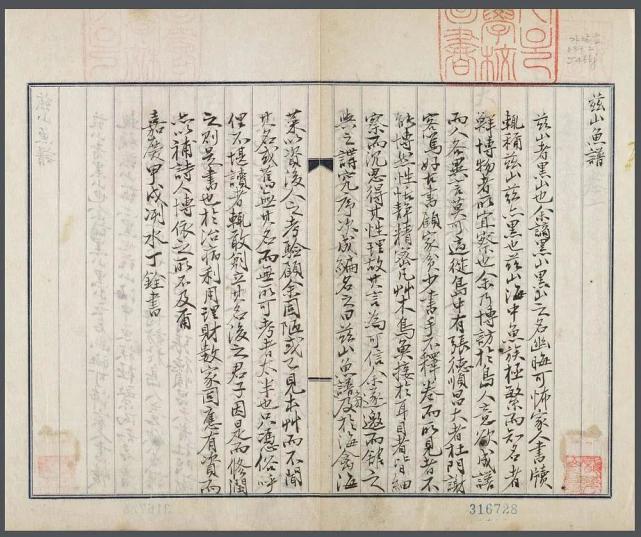 玆山魚譜
玆山者黑山也余謫黑山黑山之名幽晦可怖家人書牘
輒稱玆山玆亦黑也玆山海中魚族極繁而知名者
鮮博物者所宜察也余乃博訪於島人意欲成譜
而人各異言莫可適從島中有張德順昌大者杜門謝
客篤好古書顧家貧少書手不釋卷而所見者不
能博然性恬靜精密凡艸木鳥魚接於耳目者皆細
察而沉思得其性理故其言為可信余遂邀而館之
與之講究序次成編名之曰玆山魚譜旁及於海禽海
菜以資後人之考驗顧余固陋或已見本艸而不聞
其名或舊無其名而無所可考者太半也只憑俗呼
俚不堪讀者輒敢創立其名後之君子因是而修潤
之則是書也於治病利用理財數家固應有資而
亦以補詩人博依之所不及爾
嘉慶甲戌洌水丁銓書
316728
316728